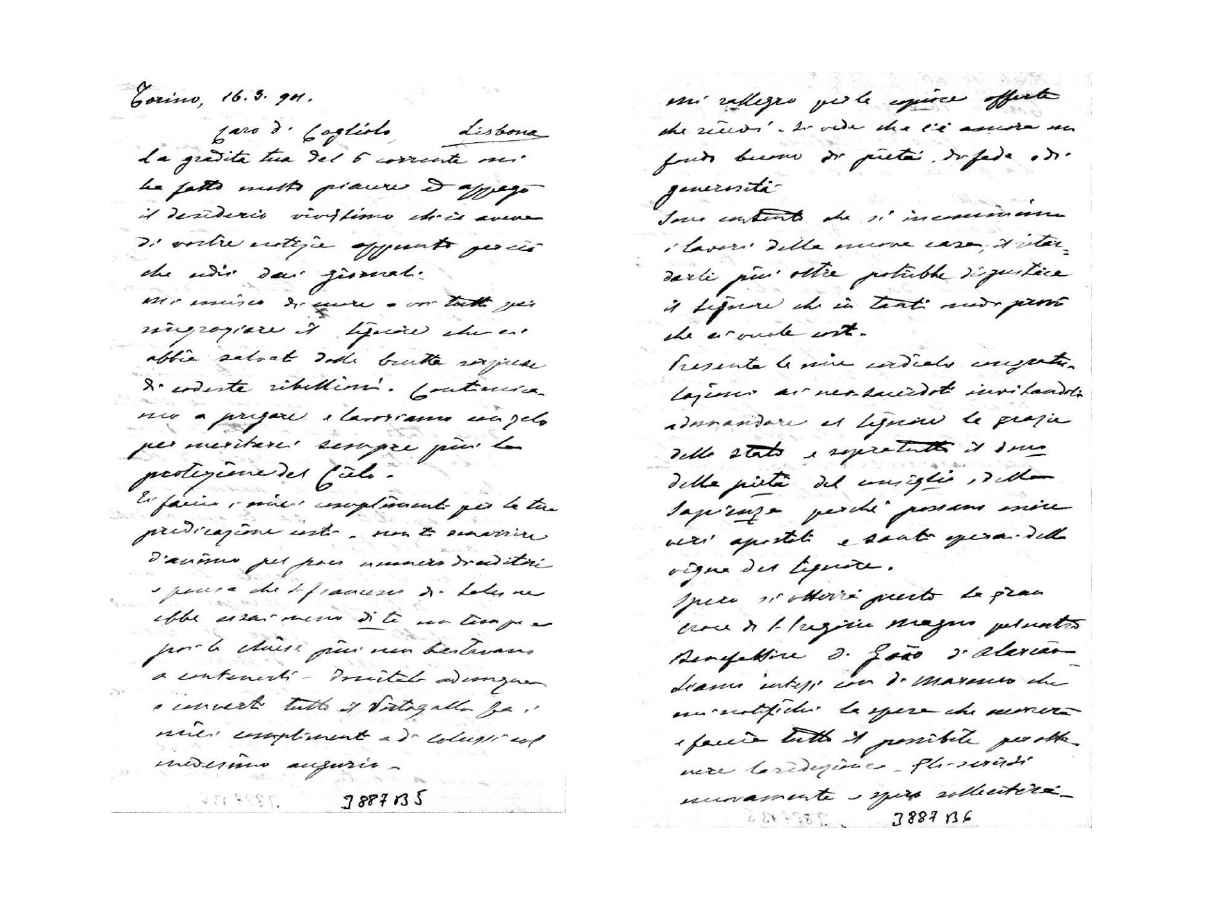 Torino, 16.3.901.
Caro D. Cogliolo, Lisbona
La gradita tua del 6 corrente mi
ha fatto molto piacere ed appagò
il desiderio vivissimo che io aveva
di vostre notizie appunto perciò
che udii dai giornali.
Mi unisco di cuore a voi tutti per
ringraziare il Signore che vi
abbia salvati dalle brutte sorprese
di codeste ribellioni. Continuia-
mo a pregare e lavoriamo con zelo
per meritarci sempre più la
protezione del Cielo.
Ti faccio i miei complimenti per la tua
predicazione costì, non ti smarrire
d'animo pel poco numero di uditori
e pensa che S. Francesco di Sales ne
ebbe assai meno di te un tempo e
poi le chiese più non bastavano
a contenerli. Imitalo adunque
e converti tutto il Portogallo. Fa i
miei complimenti a D. Colussi col
medesimo augurio.
3887 B5
Mi rallegro per le copiose offerte
che ricevi. Si vede che c'è ancora un
fondo buono di pietà, di fede e di
generosità.
Sono contento che si incomincino
i lavori della nuova casa, il ritar-
darli più oltre potrebbe disgustare
il Signore che in tanti modi provò
che ci vuole costì.
Presenta le mie cordiali congratu-
lazioni ai neosacerdoti invitandoli
a domandare al Signore le grazie
dello stato e sopratutto il dono
della pietà del consiglio e della
Sapienza perché possano essere
veri apostoli e santi operai della
vigna del Signore.
Spero si otterrà presto la gran
croce di S. Gregorio Magno pel nostro
Benefattore D. João d'Alarcão
Siamo intesi con D. Marenco che
mi notifichi la spesa che occorrerà
e faccia tutto il possibile per otte-
nere la riduzione. Gli scrissi
nuovamente e spero solleciterà
3887 B6